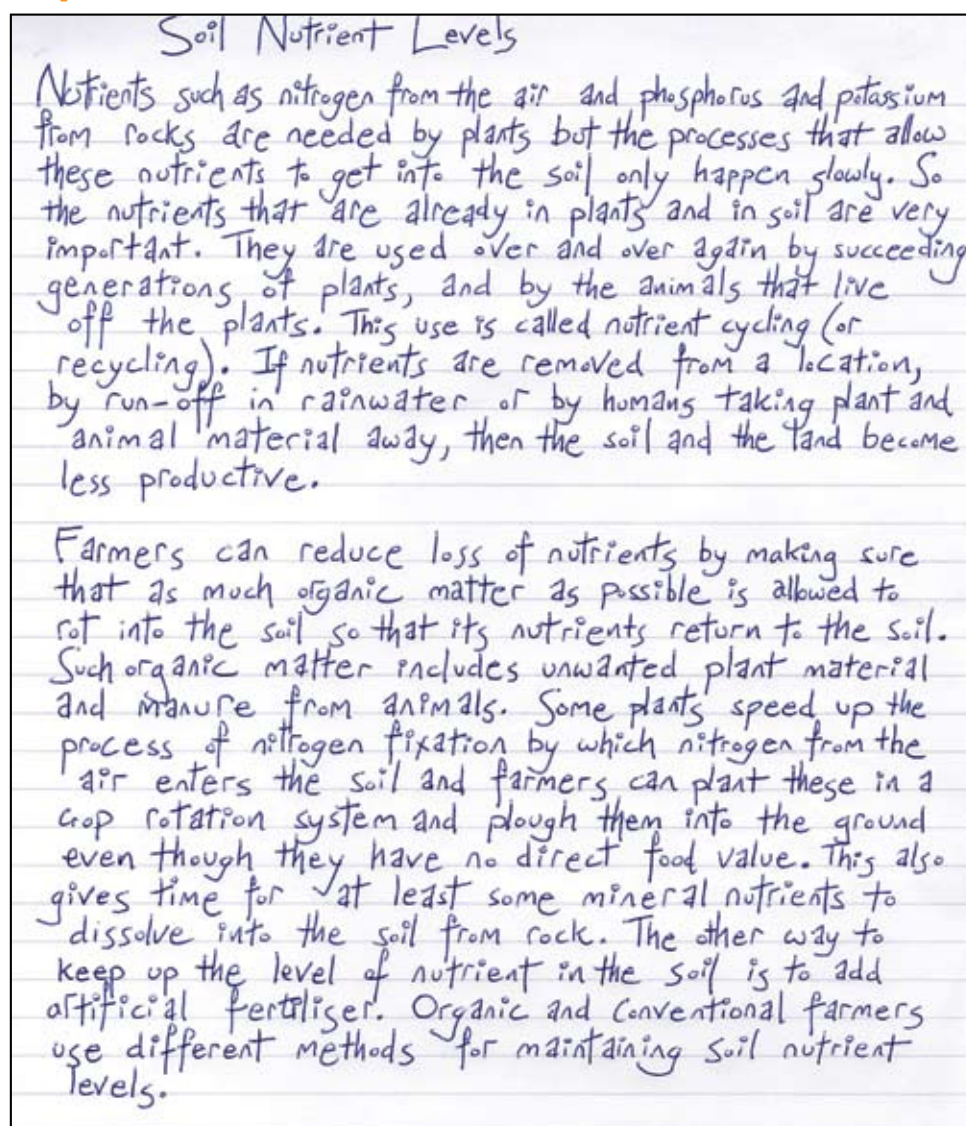 Soil Nutrient Levels
Nutrients such as nitrogen from the air and phosphorus and potassium
from rocks are needed by plants but the processes that allow
these nutrients to get into the soil only happen slowly. So
the nutrients that are already in plants and in soil are very
important. They are used over and over again by succeeding
generations of plants, and by the animals that live
off the plants. This use is called nutrient cycling (or
recycling). If nutrients are removed from a location,
by run-off in rainwater or by humans taking plant and
animal material away, then the soil and the land become
less productive.
Farmers can reduce loss of nutrients by making sure
that as much organic matter as possible is allowed to
rot into the soil so that its nutrients return to the soil.
Such organic matter includes unwanted plant material
and manure from animals. Some plants speed up the
process of nitrogen fixation by which nitrogen from the
air enters the soil and farmers can plant these in a
crop rotation system and plough them into the ground
even though they have no direct food value. This also
gives time for at least some mineral nutrients to
dissolve into the soil from rock. The other way to
keep up the level of nutrient in the soil is to add
artificial fertiliser. Organic and conventional farmers
use different methods for maintaining soil nutrient
levels.